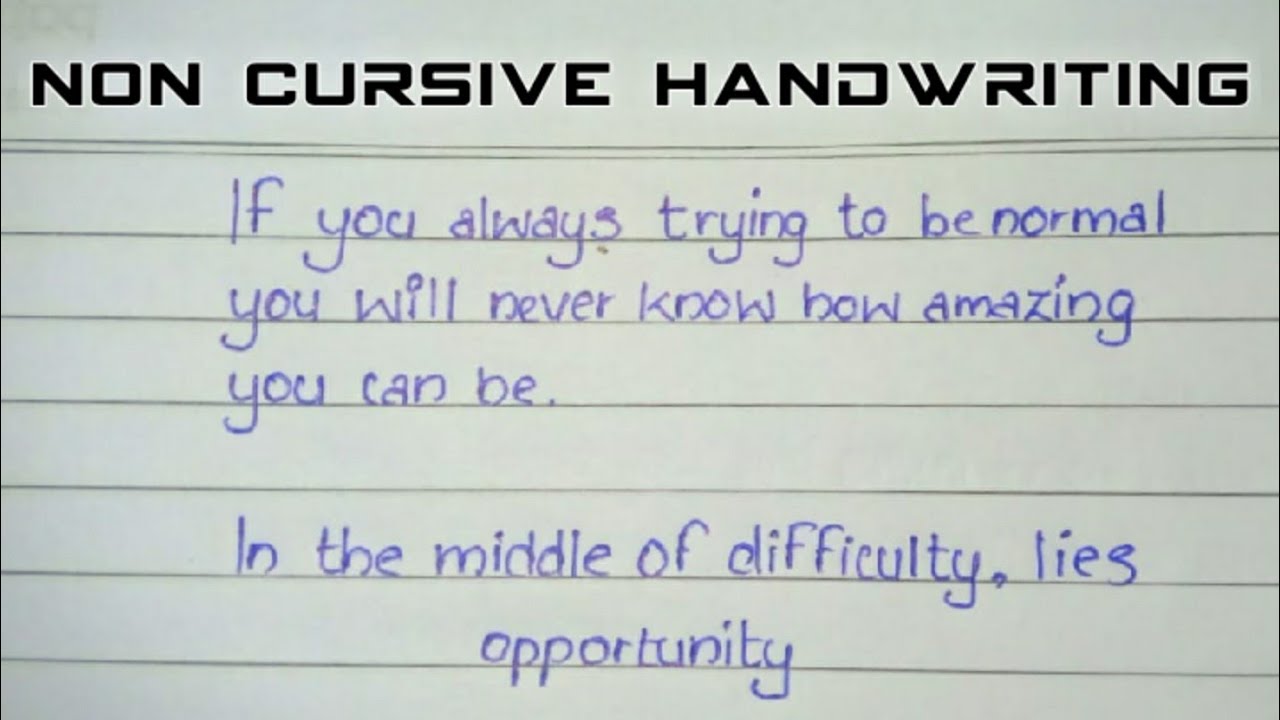 NON CURSIVE HANDWRITING
If you always trying to be normal
you will never know how amazing
you can be.
In the middle of difficulty, lies
opportunity